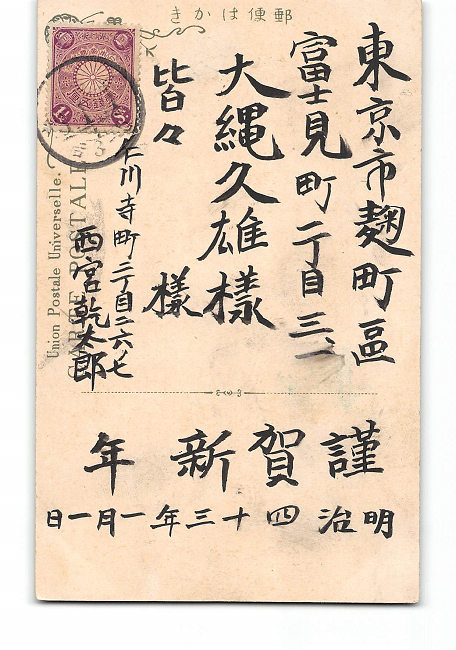 郵便はかき
東京市麹町區
富士見町二丁目三、一
大縄久雄様
皆々様
仁川寺町二丁目二六ノ七
西宮乾太郎
Union Postale Universelle.
CARTE POSTALE
謹賀新年
明治四十三年一月一日